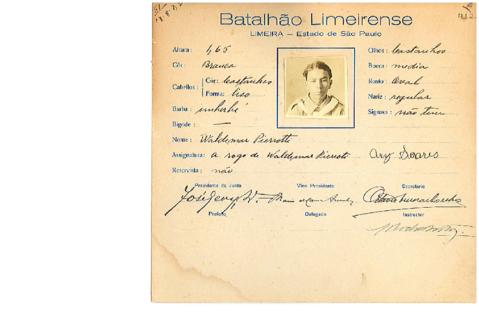 Batalhão Limeirense
LIMEIRA — Estado de São Paulo
Altura: 1,65
Olhos: Castanhos
Côr: Branca
Boca: media
Cabellos: Côr: Castanhos
Forma: liso
Rosto: Oval
Nariz: regular
Barba: imberbe
Signaes: não tem
Bigode: —
Nome: Waldemar Pierrotti
Assignatura: a rogo de Waldemar Pierroti Ary Soares
Reservista: não
Presidente da Junta Vice Presidente Secretario
Prefeito Delegado Instructor